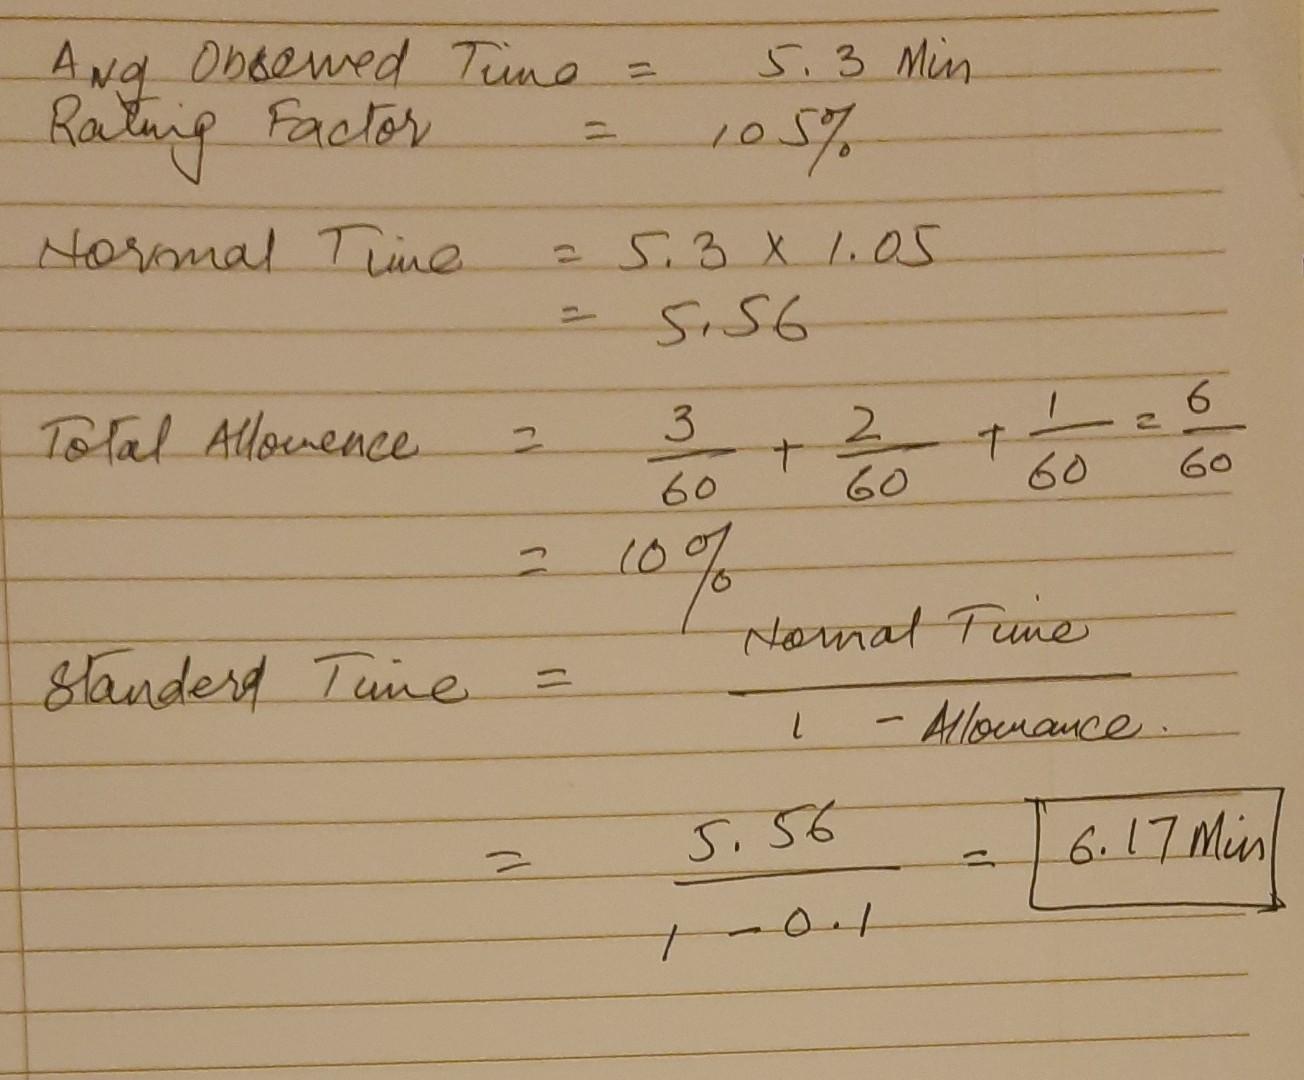 Avg Observed Time = 5.3 Min
Rating Factor = 105%
Normal Time = 5.3 x 1.05
= 5.56
Total Allowence = 3/60 + 2/60 + 1/60 = 6/60
= 10%
Standerd Time = Normal Time / 1 - Allowance.
= 5.56 / 1 - 0.1 = 6.17 Min